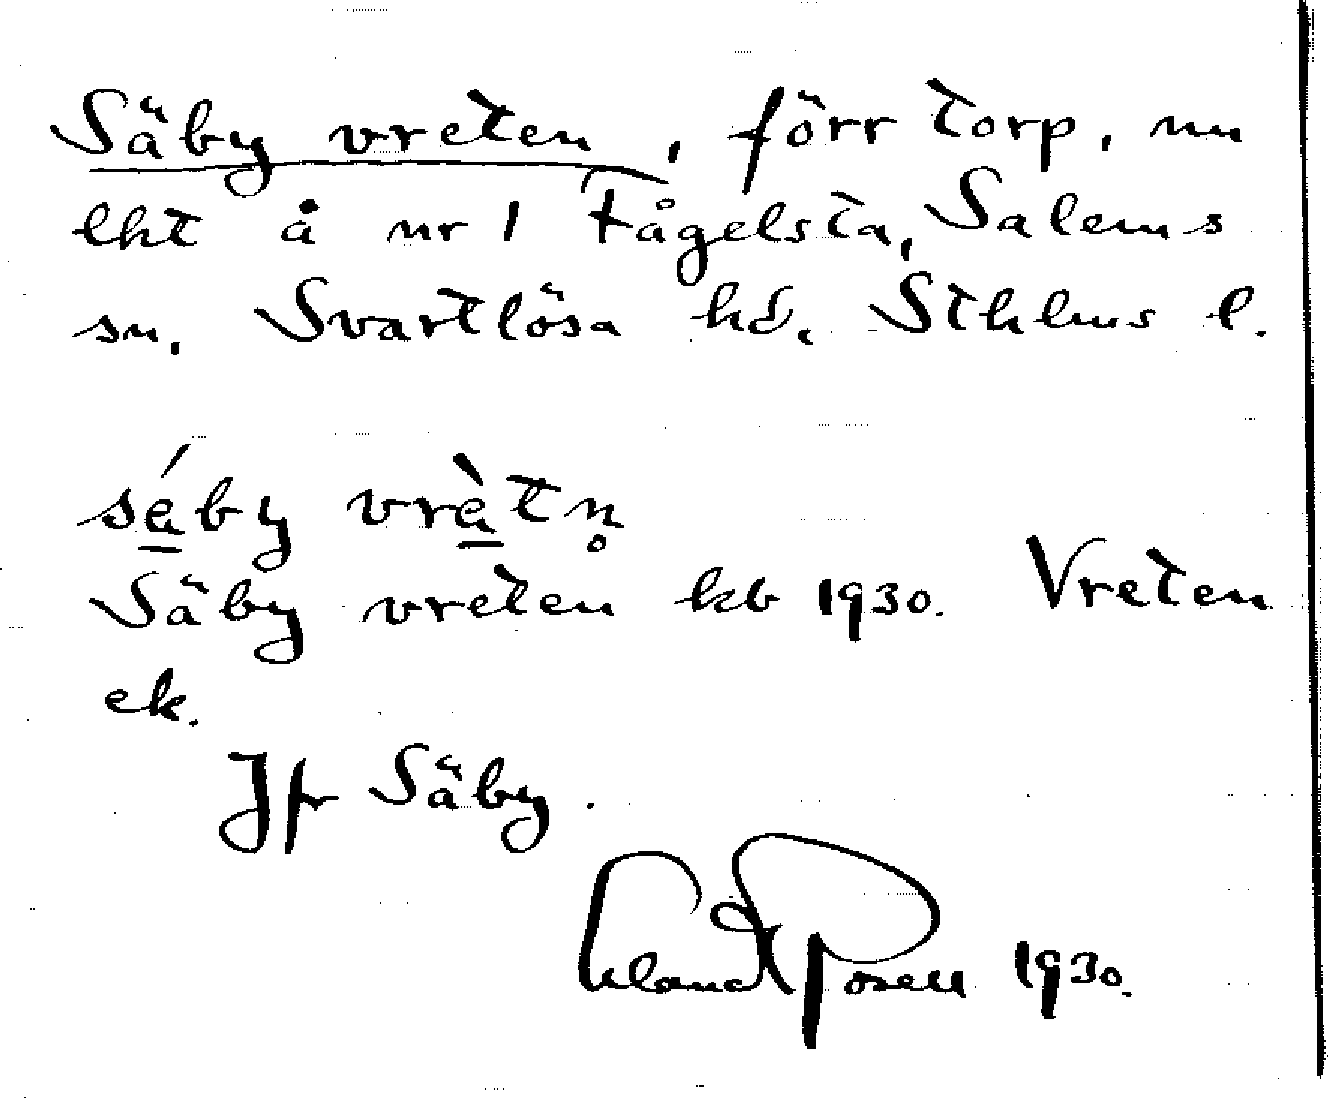 Säby vreten, förr torp, nu
lht å nr 1 Fågelsta, Salems
sn, Svartlösa hd, Sthlms l.
sä́by vrä̀tn̥
Säby vreten kb 1930. Vreten
ek.
Jfr Säby.
Erland Rosell 1930.